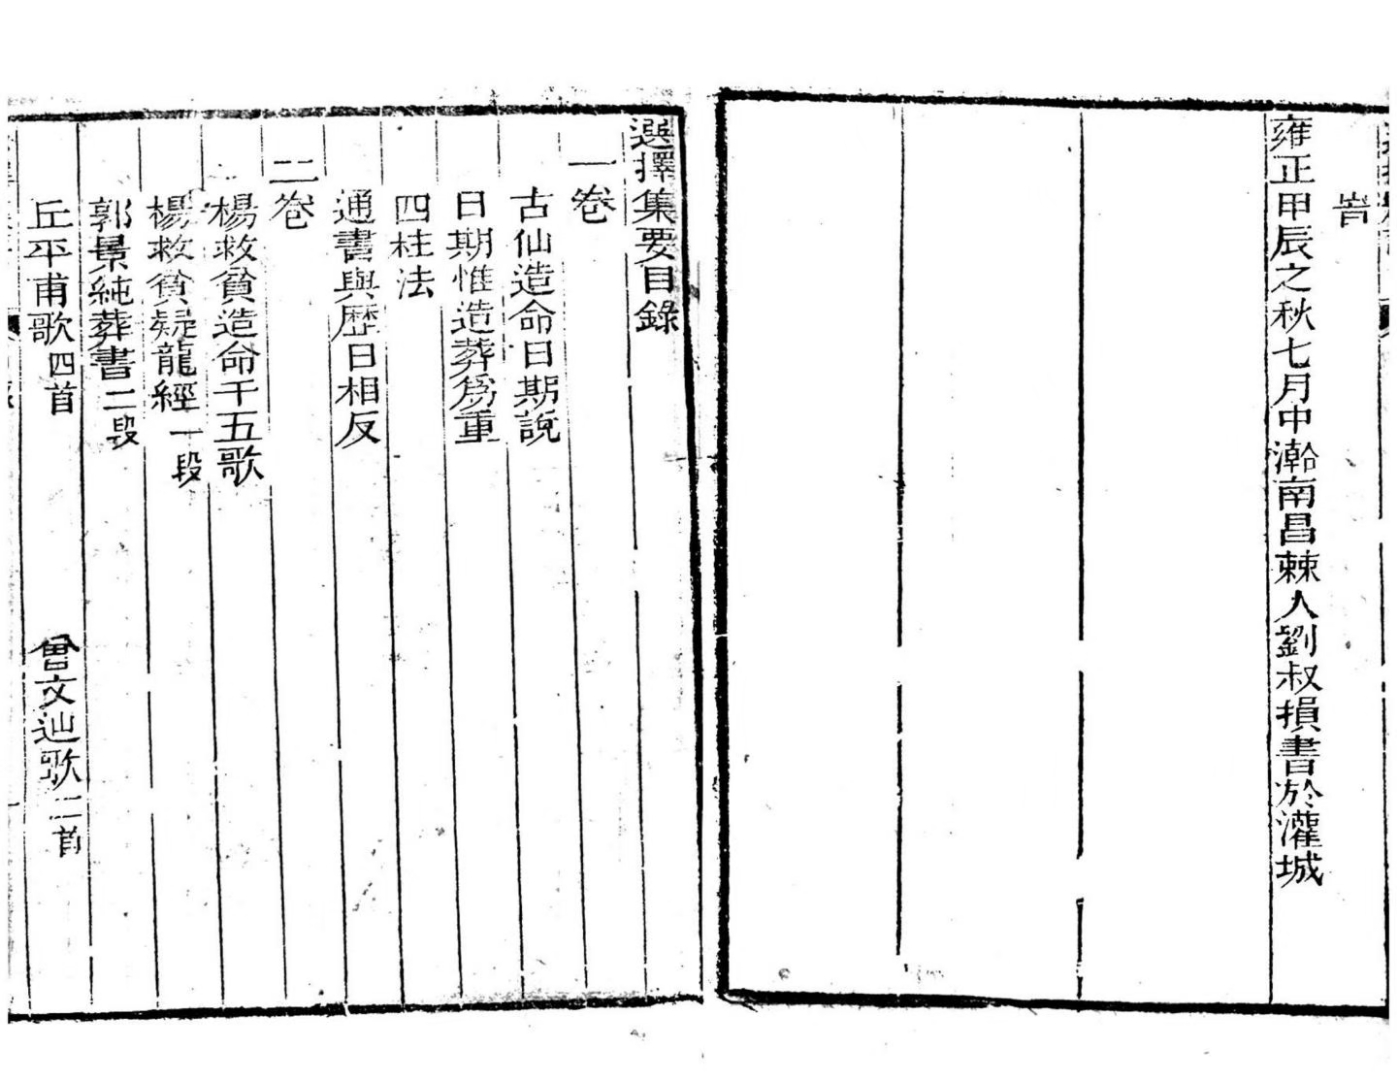 旹
雍正甲辰之秋七月中澣南昌棘人劉叔損書於灌城
選擇集要目錄
一卷
古仙造命日期說
日期惟造葬爲重
四柱法
通書與歷日相反
二卷
楊救貧造命千五歌
楊救貧疑龍經一段
郭景純葬書二段
丘平甫歌四首 曾文辿歌二首